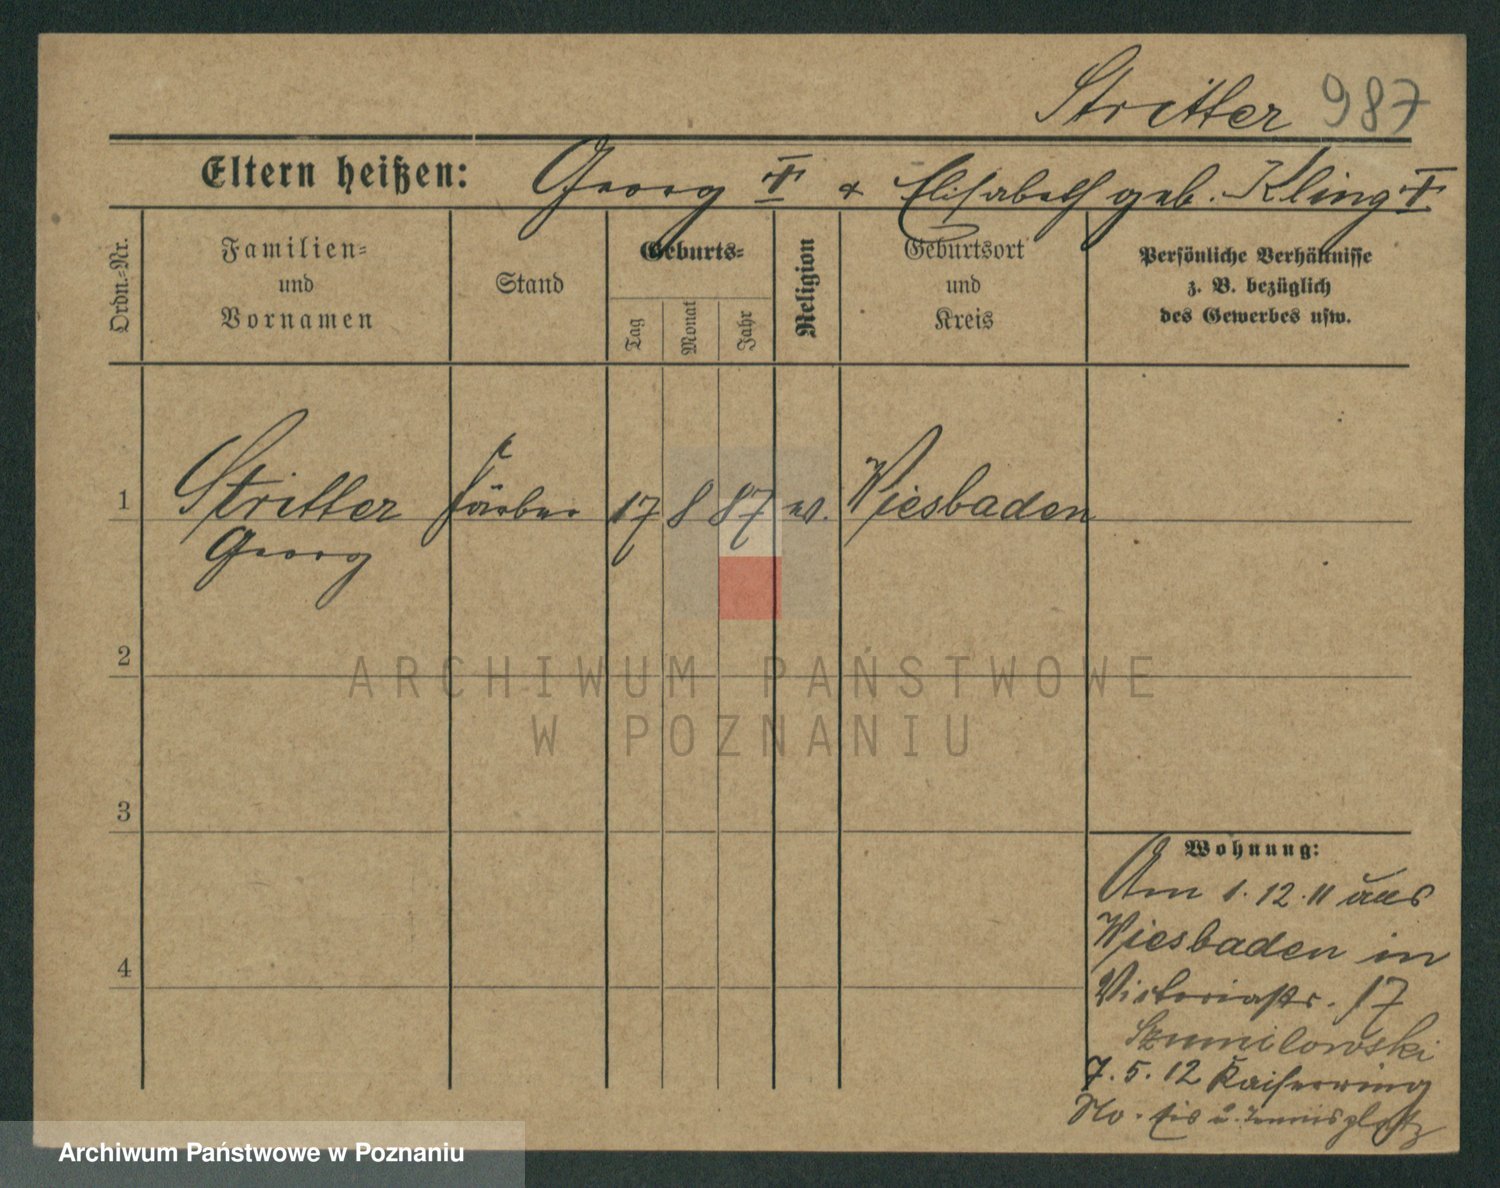 Stritter 987
Eltern heißen: Georg † & Elisabeth geb. Kling †
Ordn.-Nr.
Familien-
und
Vornamen
Stand
Geburts-
Tag
Monat
Jahr
Religion
Geburtsort
und
Kreis
Persönliche Verhältnisse
z. B. bezüglich
des Gewerbes usw.
1 Stritter Färber 17 8 87 ev. Wiesbaden
Georg
2
ARCHIWUM PAŃSTWOWE
W POZNANIU
3
4
Wohnung:
Am 1.12.11 aus
Wiesbaden in
Victoriastr. 17
Szumilowski
7.5.12 Kaiserring
Archiwum Państwowe w Poznaniu